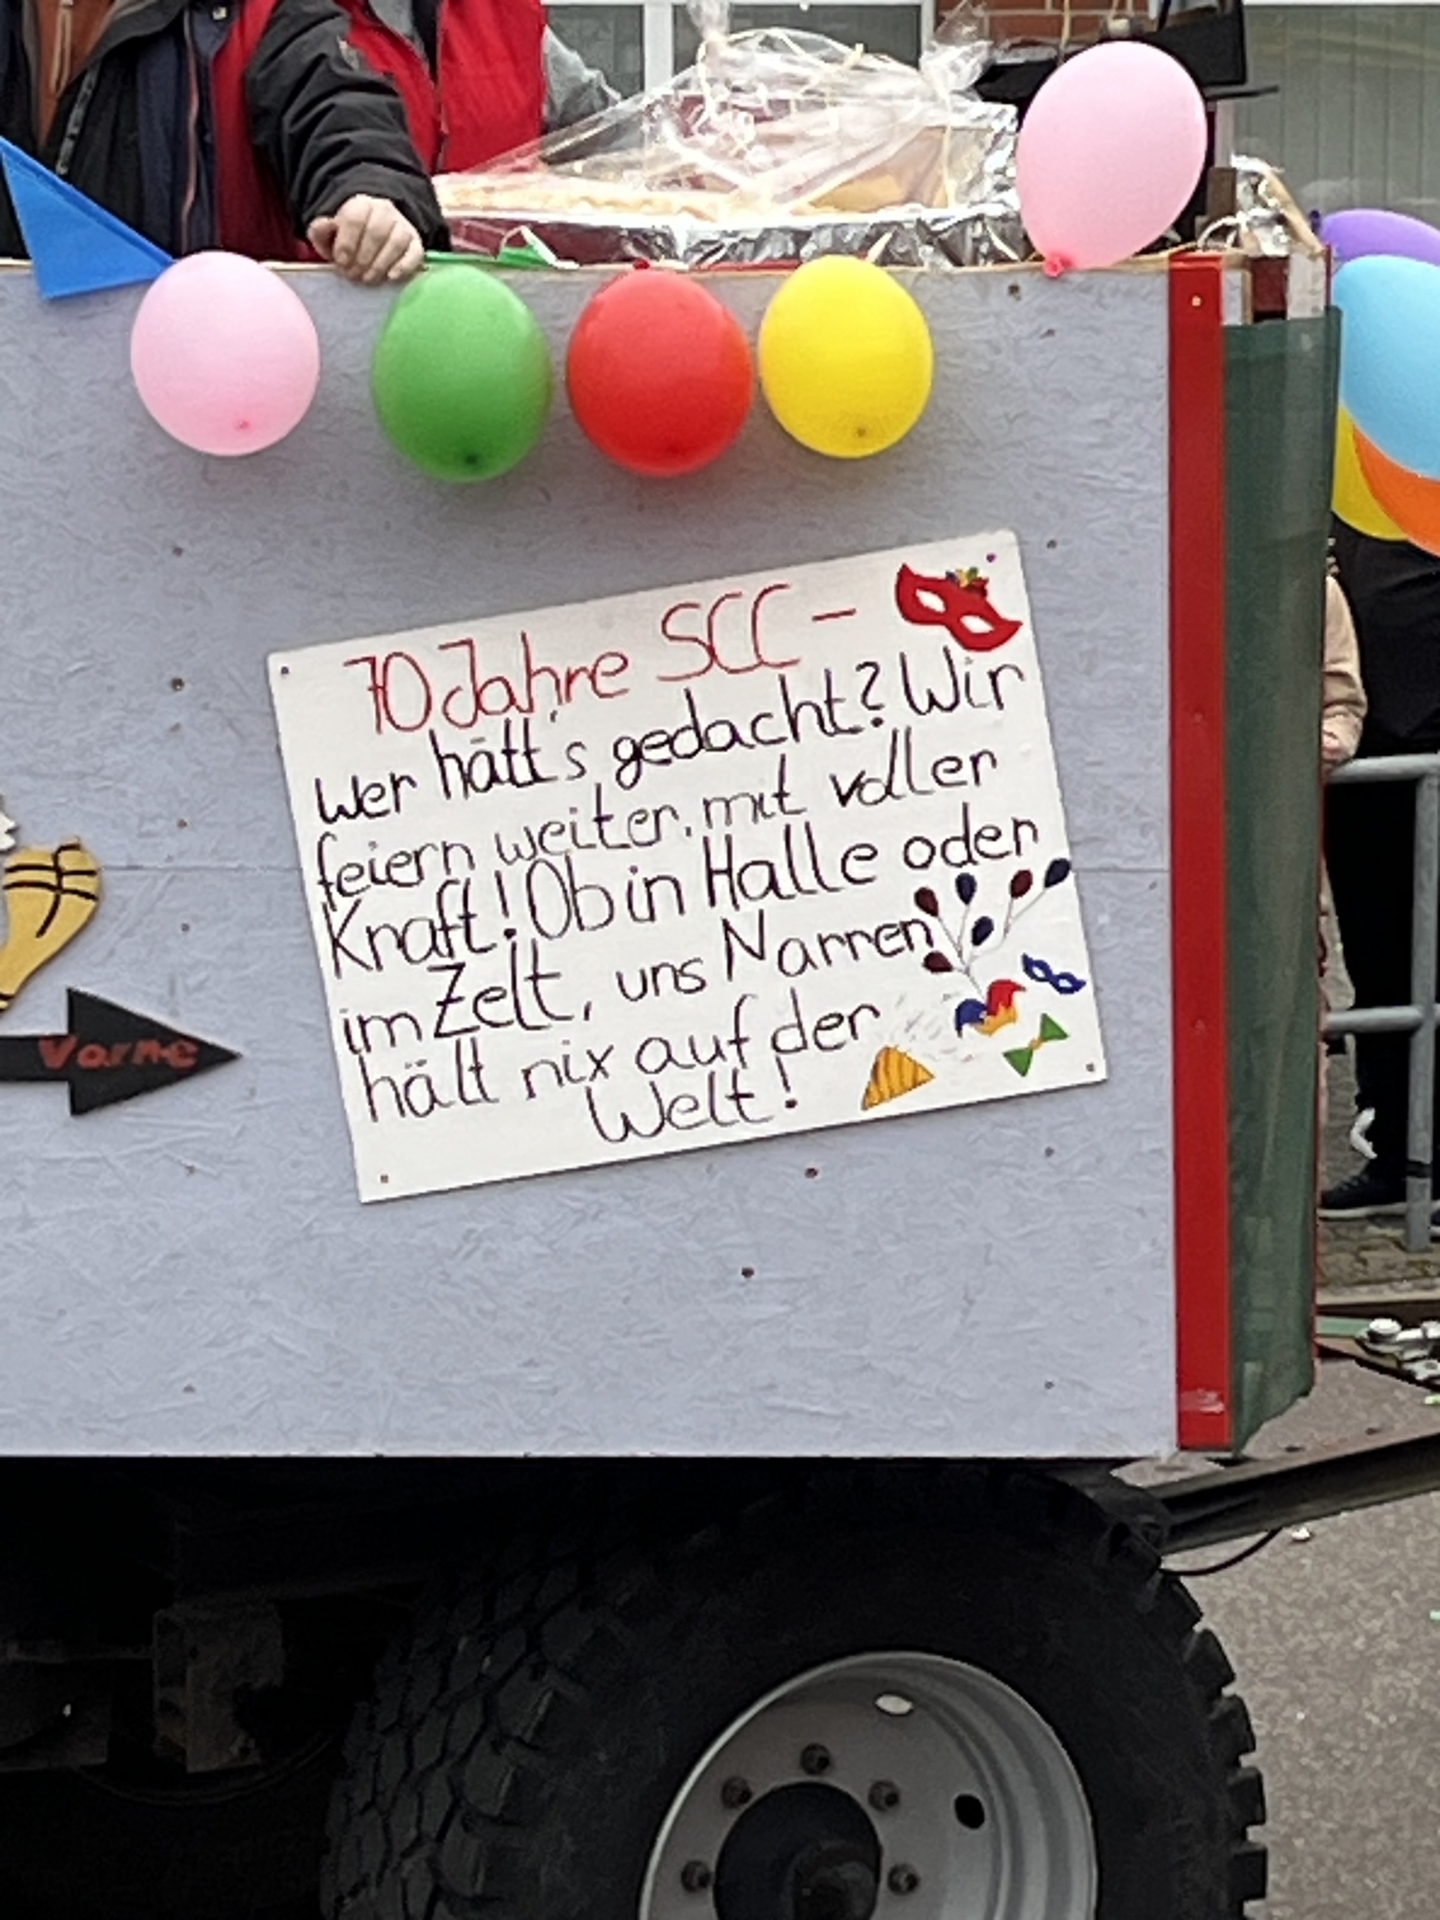 70 Jahre SCC -
Wer hätt's gedacht? Wir
feiern weiter mit voller
Kraft! Ob in Halle oder
im Zelt, uns Narren
hält nix auf der
Welt!
Vorne